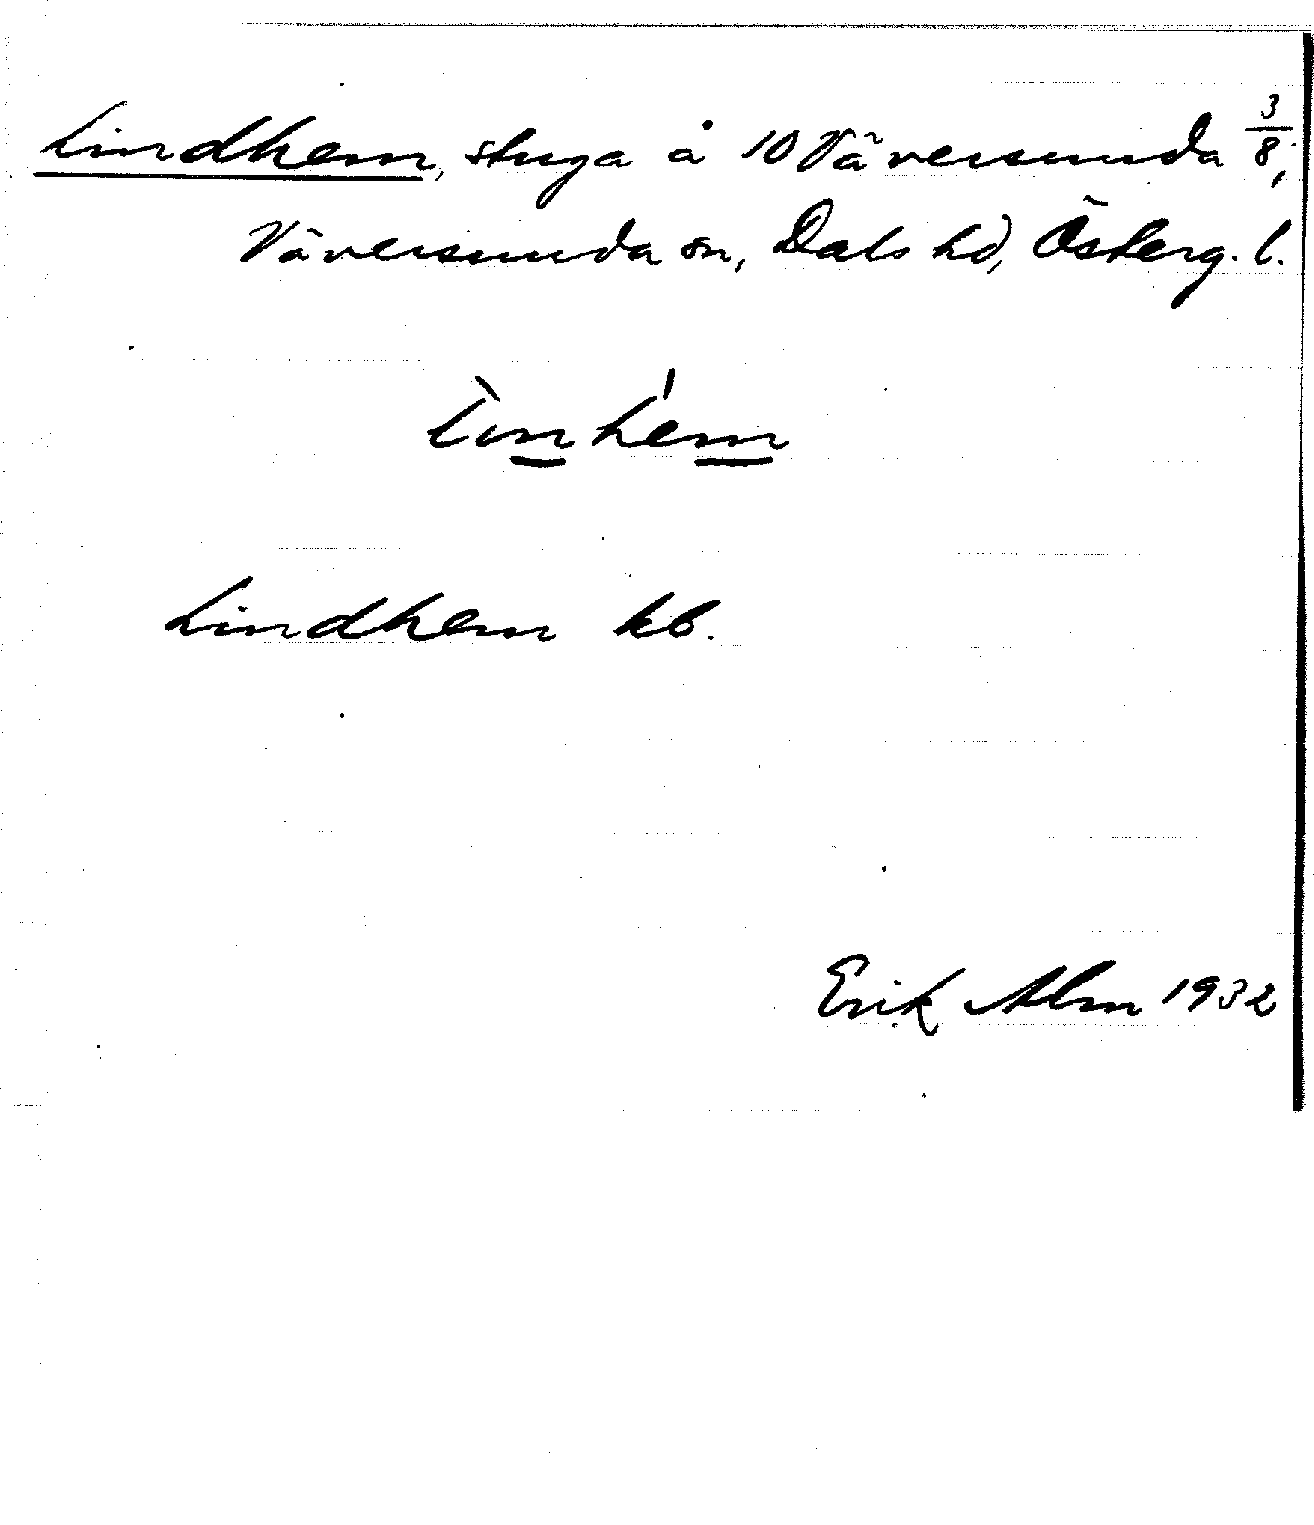 Lindhem, stuga å 10 Väversunda 3/8,
Väversunda sn, Dals hd, Österg. l.
l̀inhém
Lindhem kb.
Erik Alm 1932